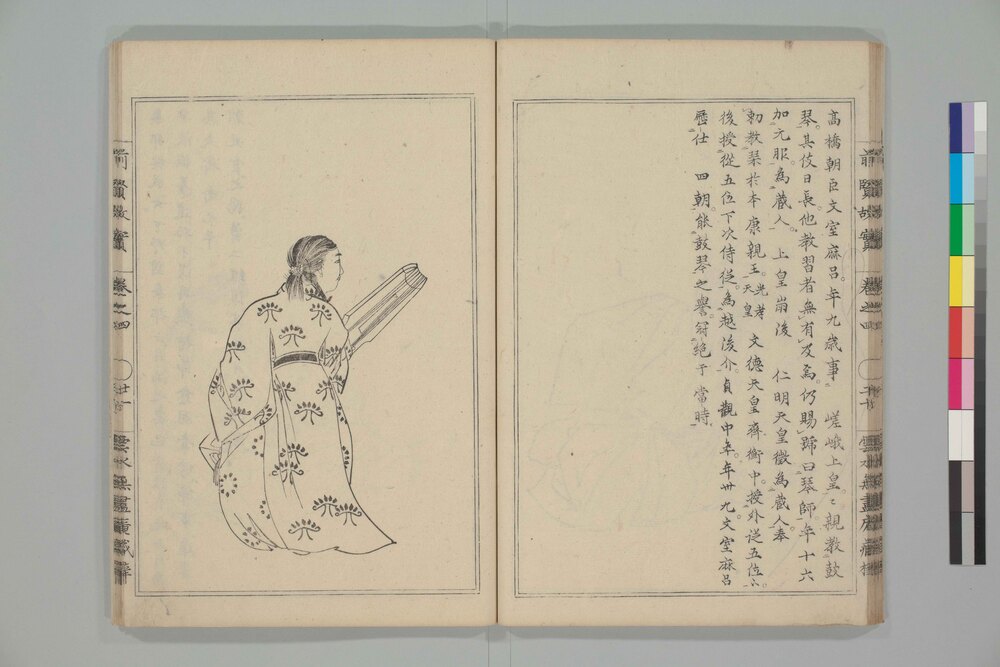 高橋朝臣文室麻呂。年九歳事 嵯峨上皇〻親敎鼓
琴。其伎日長。他敎習者無有及焉。仍賜號曰琴師。年十六
加元服爲藏人。 上皇崩後 仁明天皇徵爲藏人奉
勅敎琹於本康親王。光孝天皇 文德天皇齊衡中。授外從五位下。
後授從五位下次侍從。爲越後介。貞觀中卒。年卅九文室麻呂
歷仕 四朝。能鼓琴之譽。穪絶于當時。
前賢故實 卷之四
前賢故實 卷之四 廿一